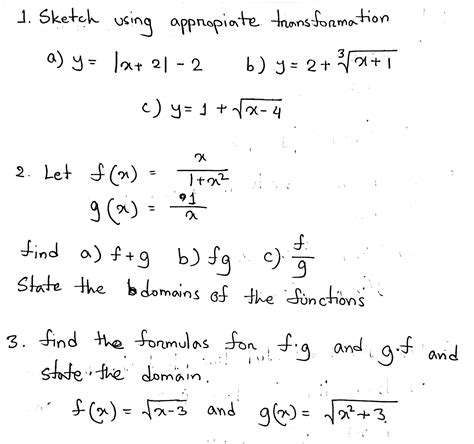 1. Sketch using appropiate transformation
a) y = |x + 2| - 2 b) y = 2 + ∛(x+1)
c) y = 1 + √(x-4)
2. Let f(x) = x/(1+x²)
g(x) = 1/x
find a) f+g b) fg c) f/g
State the domains of the functions
3. find the formulas for f·g and g·f and
state the domain.
f(x) = √(x-3) and g(x) = √(x²+3)